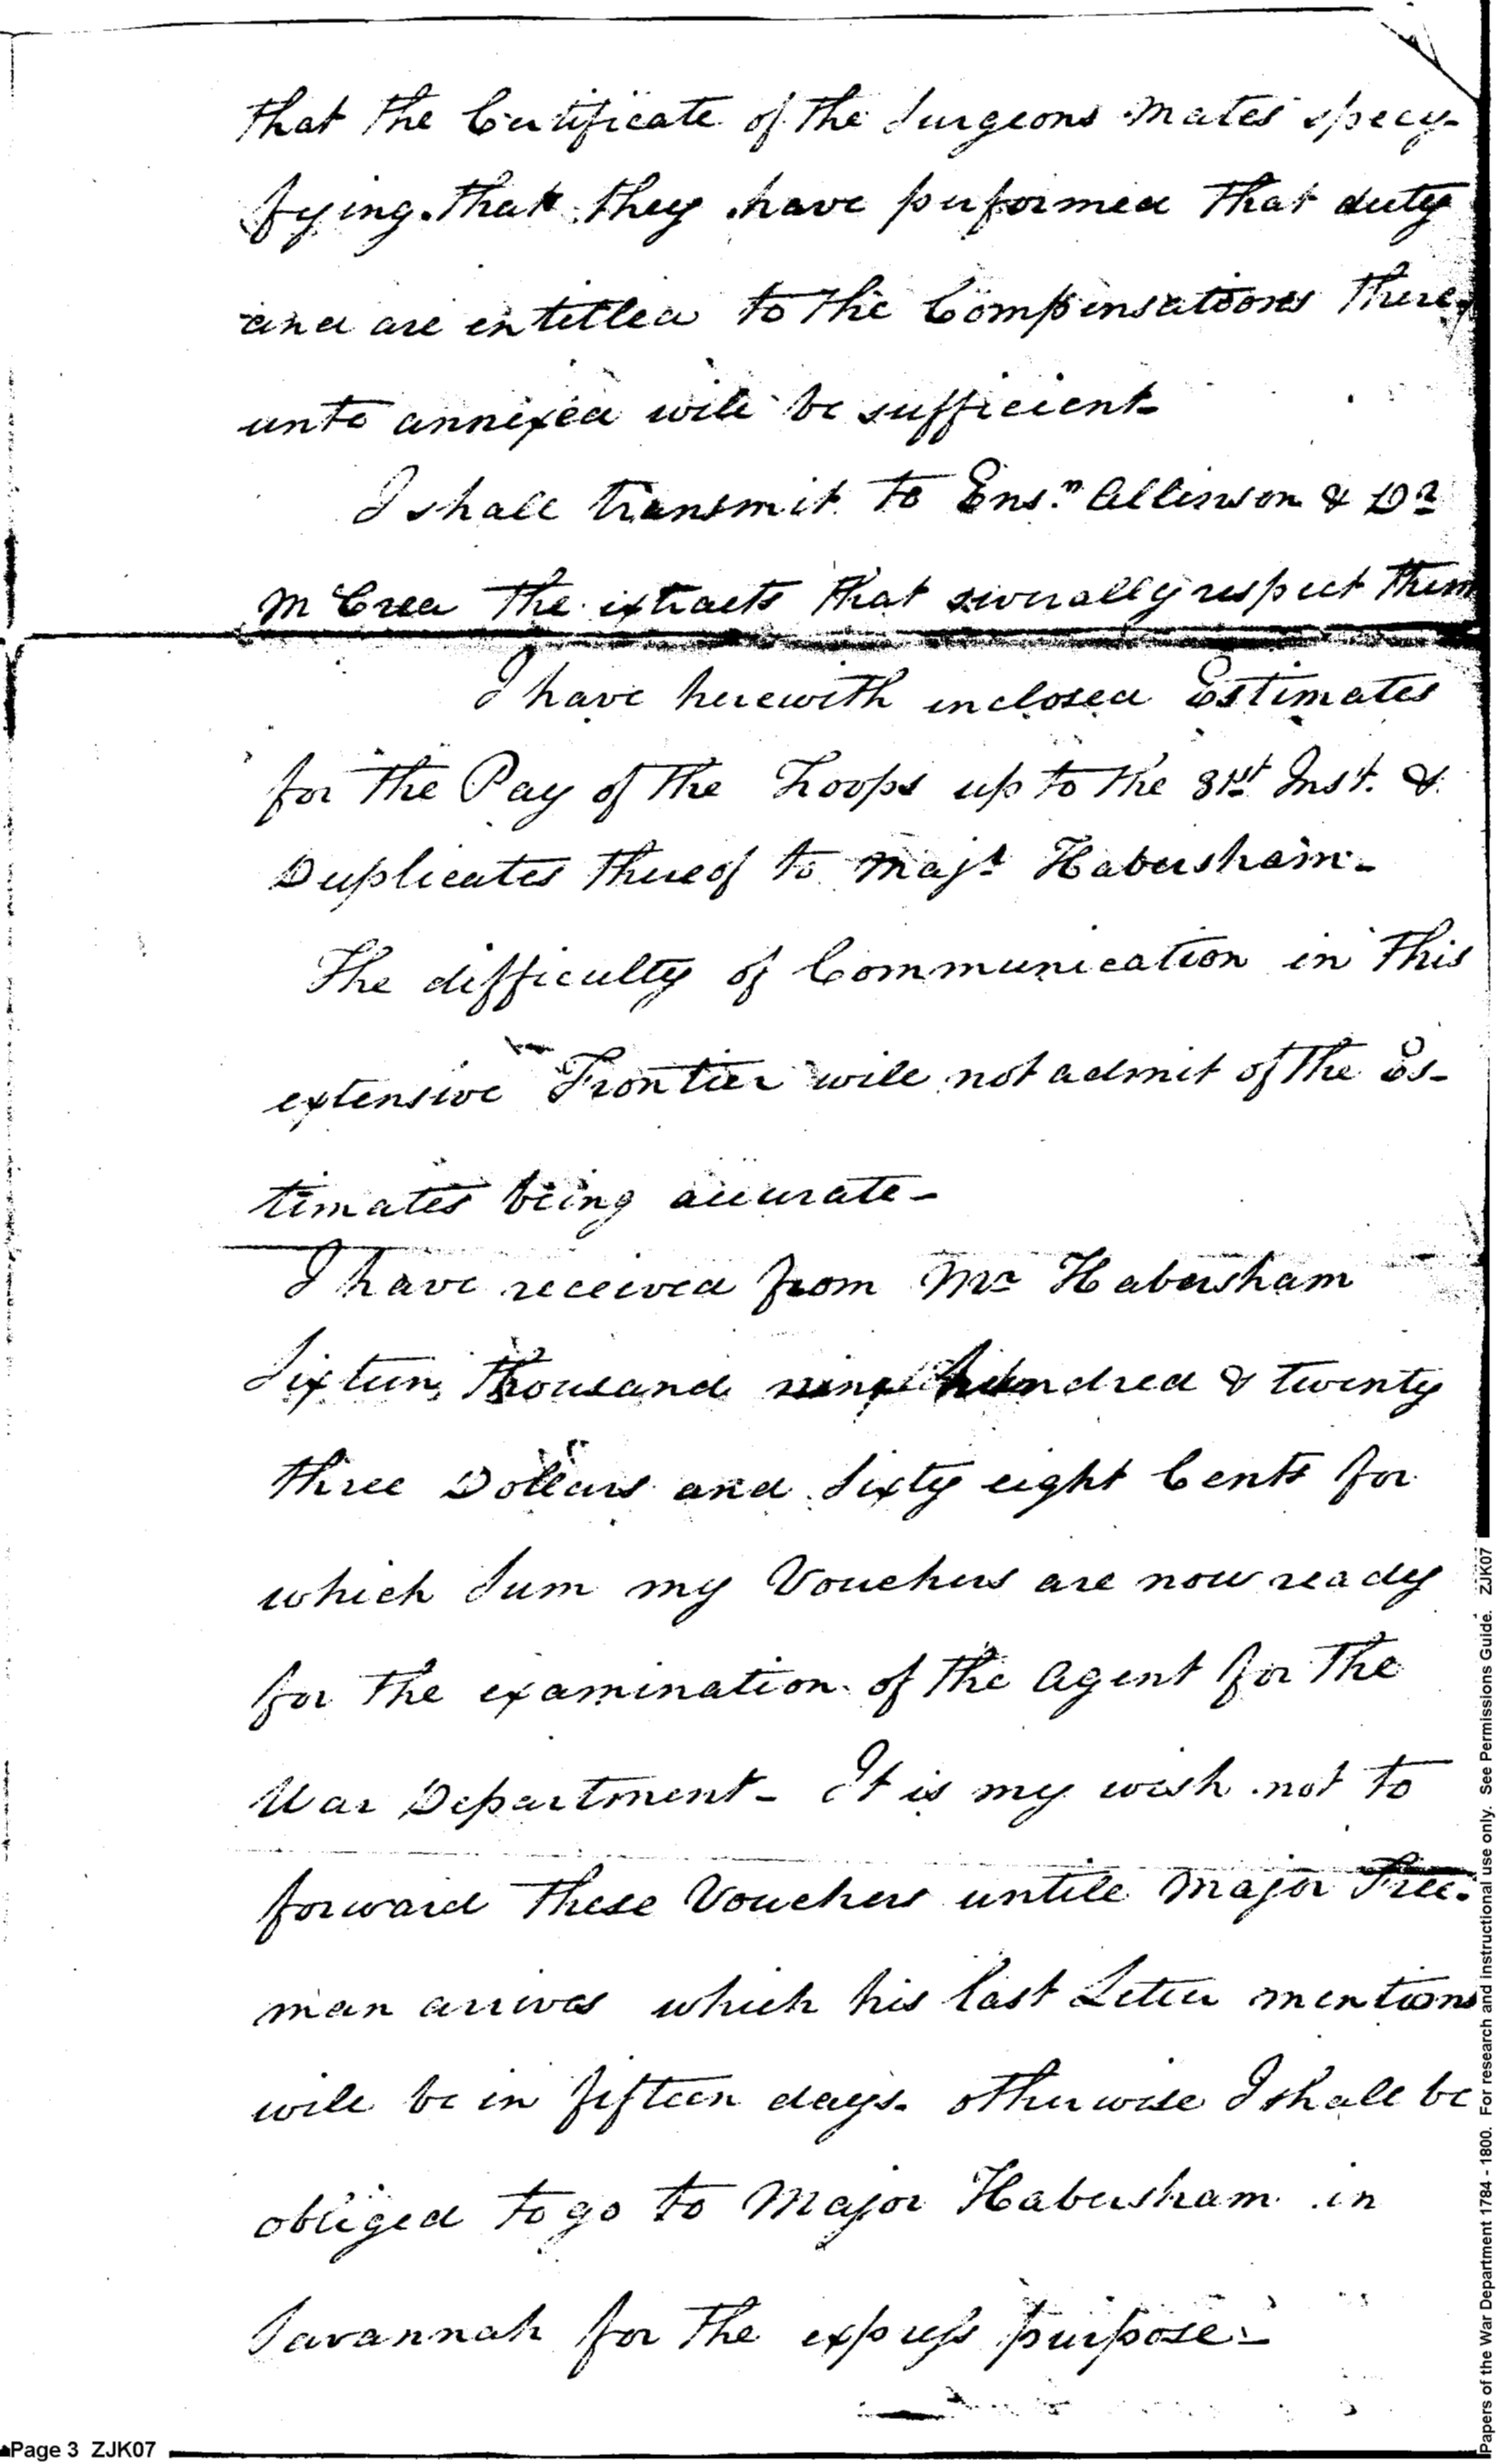 that the Certificate of the Surgeons Mates specy-
fying that they have performed that duty
and are entitled to the Compensations there-
unto annexed will be sufficient-
I shall transmit to Ensn. Allinson & Dr
McCrea the extracts that severally respect them
I have herewith inclosed Estimates
for the Pay of the Troops up to the 31st Inst. &
Duplicates thereof to Majr Habersham-
The difficulty of Communication in this
extensive Frontier will not admit of the Es-
timates being accurate-
I have received from Mr Habersham
Sixteen Thousand nine hundred & twenty
three Dollars and Sixty eight Cents for
which Sum my Vouchers are now ready
for the examination of the Agent for the
War Department- It is my wish not to
forward these Vouchers untill Major Free-
man arrives which his last Letter mentions
will be in fifteen days- otherwise I shall be
obliged to go to Major Habersham in
Savannah for the express purpose-
Page 3 ZJK07
Papers of the War Department 1784 - 1800. For research and instructional use only. See Permissions Guide. ZJK07